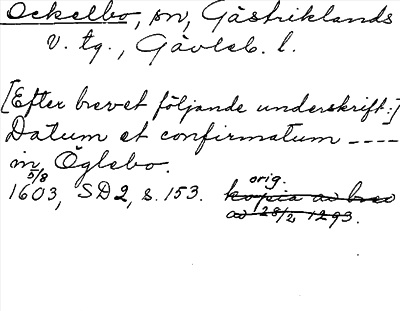 Ockelbo, sn, Gästriklands
v. tg., Gävleb. l.
[Efter brevet följande underskrift:]
Datum et confirmatum ----
in Öglebo.
5/8 orig.
1603, SD2, s. 153. kopia av brev
av 28/2 1293.